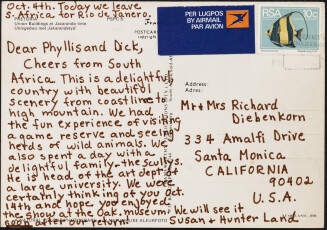 Oct. 4th. Today we leave
S. Africa for Rio de Janero.
Union Buildings in Jacaranda-time
Uniegebou met Jakarandatyd
POSTCARD
copyright
PER LUGPOS
BY AIRMAIL
PAR AVION
RSA
20c
Dear Phyllis and Dick,
Cheers from South
Africa. This is a delightful
country with beautiful
scenery from coastline to
high mountain. We had
the fun experience of visiting
a game reserve and seeing
herds of wild animals. We
also spent a day with a
delightful family - the Scullys.
He is head of the art dept. of
a large university. We were
certainly thinking of you Oct.
14th and hope you enjoyed
the show at the Oak. museum.
soon after our return!
We will see it
Susan & Hunter Land
Address:
Adres:
Mr + Mrs Richard
Diebenkorn
334 Amalfi Drive
Santa Monica
CALIFORNIA
90402
U.S.A.